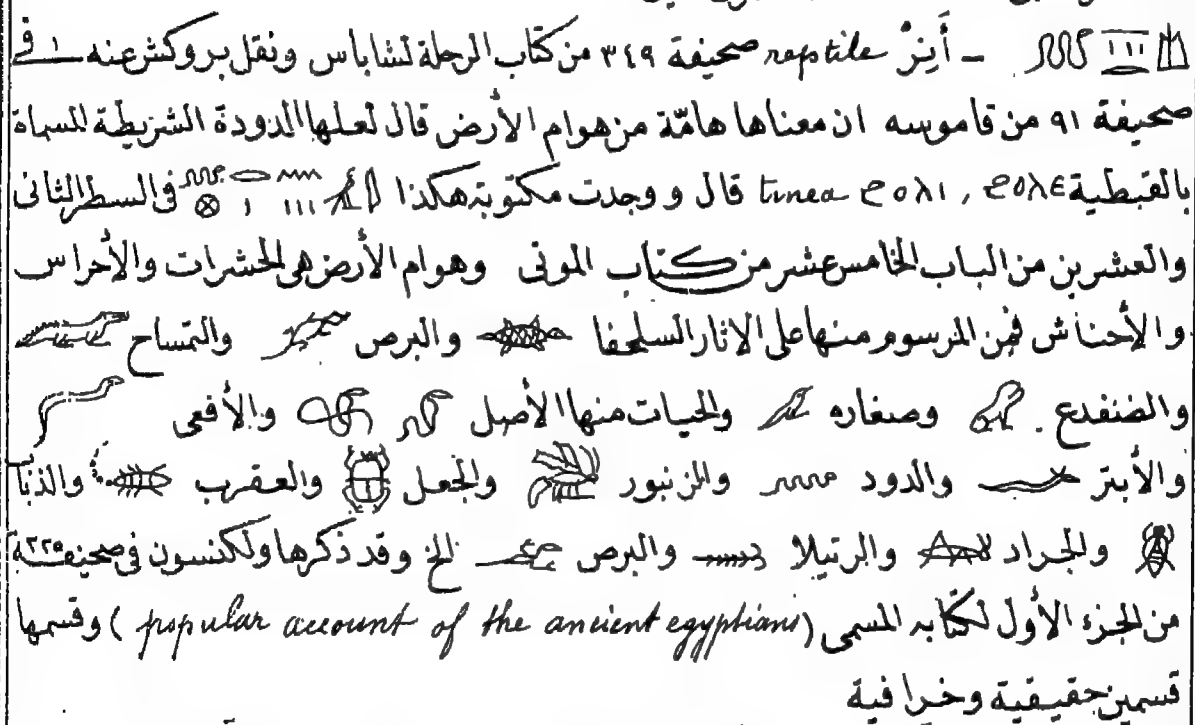 – أَنِرْ reptile صحيفة ٣٤٩ من كتاب الرحلة لشاباس ونقل بروكش عنه فى
صحيفة ٩١ من قاموسه ان معناها هامّة من هوام الأرض قال لعلها الدودة الشريطة المسماة
بالقبطية ϩⲟⲗⲉ , ϩⲟⲗⲓ tinea قال و وجدت مكتوبة هكذا فى السطر الثانى
والعشرين من الباب الخامس عشر من كتاب الموتى وهوام الأرض هى الحشرات والأحراس
والأحناش فمن المرسوم منها على الاثار السلحفا والبرص والتمساح
والضفدع . وصغاره والحيات منها الأصل والأفعى
والأبتر والدود والزنبور والجعل والعقرب والذباب
والجراد والرتيلا والبرص الخ وقد ذكرها ولكنسون فى صحيفة ٢٢٥
من الجزء الأول لكتابه المسمى (popular account of the ancient egyptians) وقسمها
قسمين حقيقية وخرافية